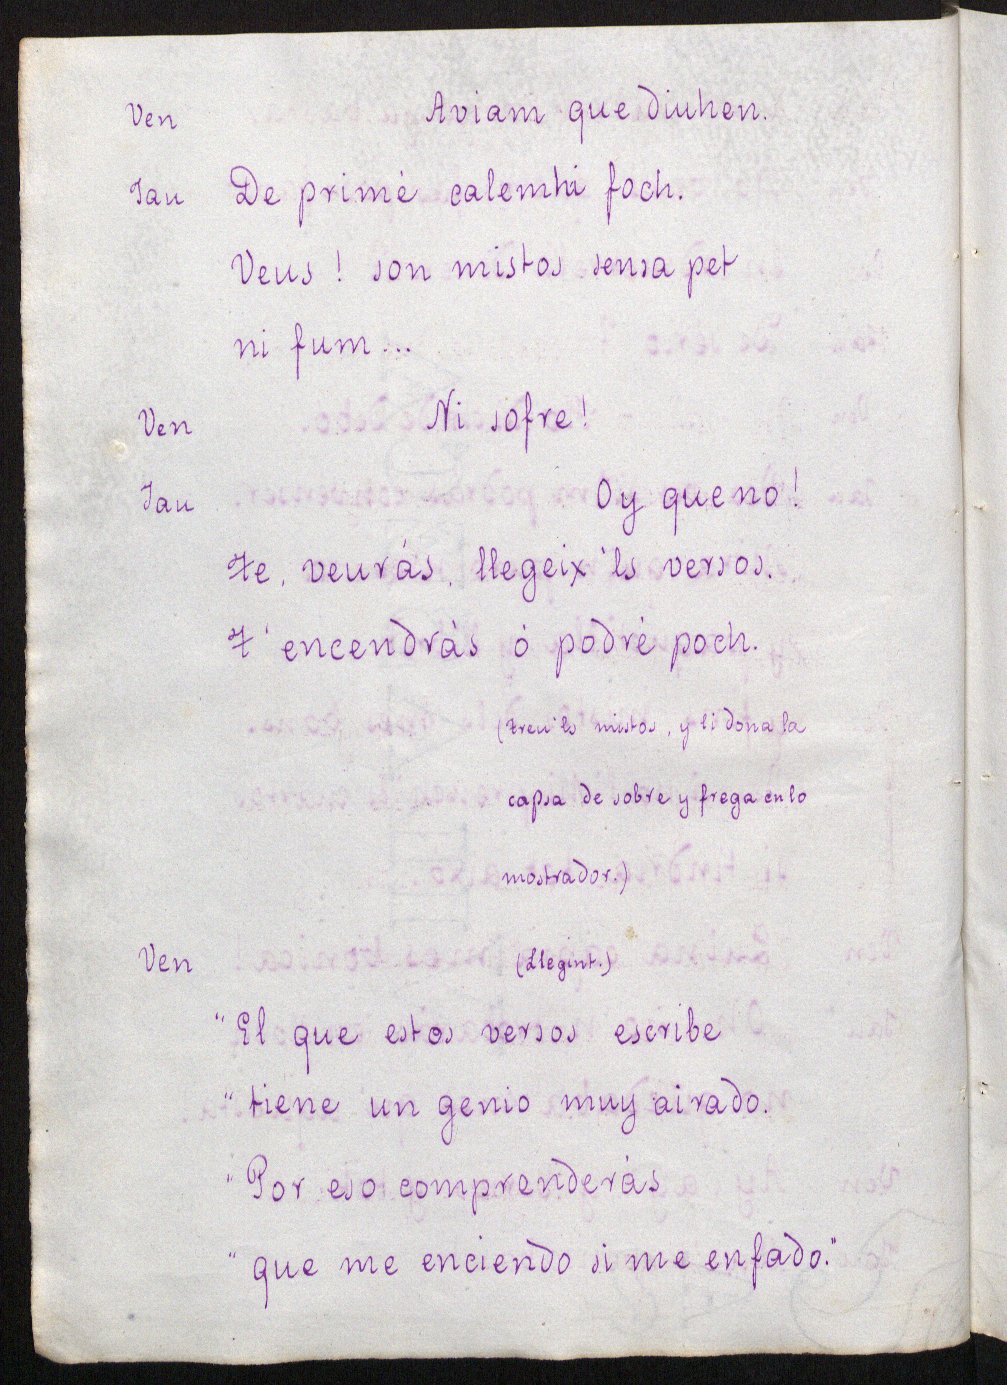 Ven Aviam que diuhen.
Jau De primé calemhi foch.
Veus! son mistos sensa pet
ni fum...
Ven Ni sofre!
Jau Oy que no!
Te, veurás, llegeix 'ls versos.
T' encendrás ó podré poch.
(treu 'ls mistos, y li dona la
capsa de sobre y frega en lo
mostrador.)
Ven (Llegint.)
"El que estos versos escribe
"tiene un genio muy airado.
"Por eso comprenderás
"que me enciendo si me enfado."